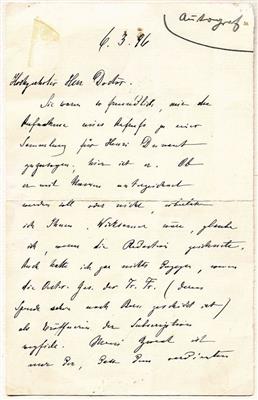 Autograf
6. 3. 96
Hochgeehrter Herr Doctor.
Sie waren so freundlich, mir die
Aufnahme eines Aufrufs zu einer
Sammlung für Henri Dunant
zuzusagen, hier ist er. Ob
er mit Namen unterzeichnet
werden soll oder nicht, überlasse
ich Ihnen. Wirksamer wäre, glaube
ich, wenn die Redaction zeichnete.
Auch hätte ich gar nichts dagegen, wenn
die Oestr. Ges. der Fr. Fr. (deren
Spende schon nach Bern geschickt ist)
als Eröffnerin der Subscription
Mein Zweck ist
nur der, dass dem verdienten